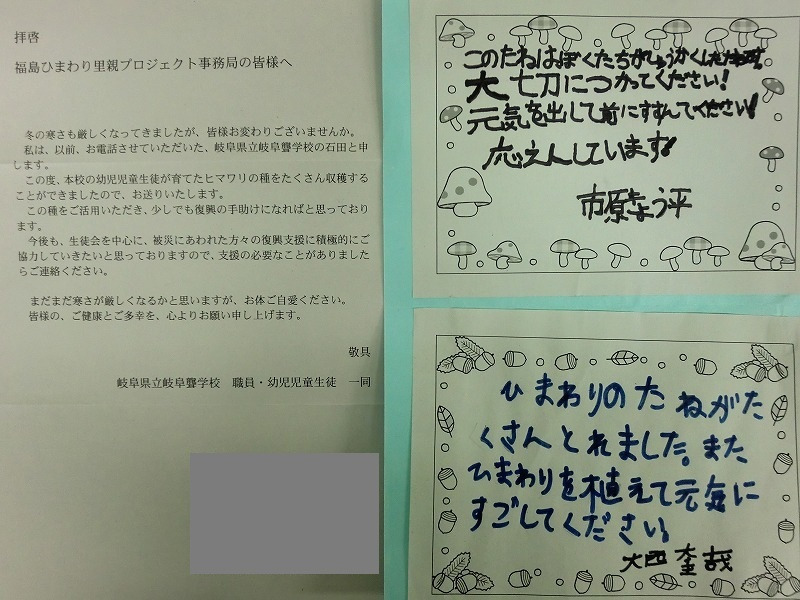 拝啓
福島ひまわり里親プロジェクト事務局の皆様へ
冬の寒さも厳しくなってきましたが、皆様お変わりございませんか。
私は、以前、お電話させていただいた、岐阜県立岐阜聾学校の石田と申
します。
この度、本校の幼児児童生徒が育てたヒマワリの種をたくさん収穫する
ことができましたので、お送りいたします。
この種をご活用いただき、少しでも復興の手助けになればと思っており
ます。
今後も、生徒会を中心に、被災にあわれた方々の復興支援に積極的にご
協力していきたいと思っておりますので、支援の必要なことがありました
らご連絡ください。
まだまだ寒さが厳しくなるかと思いますが、お体ご自愛ください。
皆様の、ご健康とご多幸を、心よりお願い申し上げます。
敬具
岐阜県立岐阜聾学校 職員・幼児児童生徒 一同
このたねはぼくたちがしゅうかくしたたねです。
大切につかってください!
元気を出して前にすすんでください!
応えんしています!
市原なう平
ひまわりのたねがた
くさんとれました。また
ひまわりを植えて元気に
すごしてください。
大西奎哉